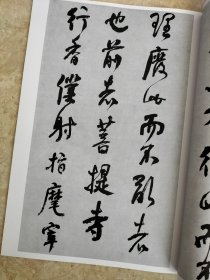 理廢此而不亂者
也前者菩提寺
行香僕射指麾宰